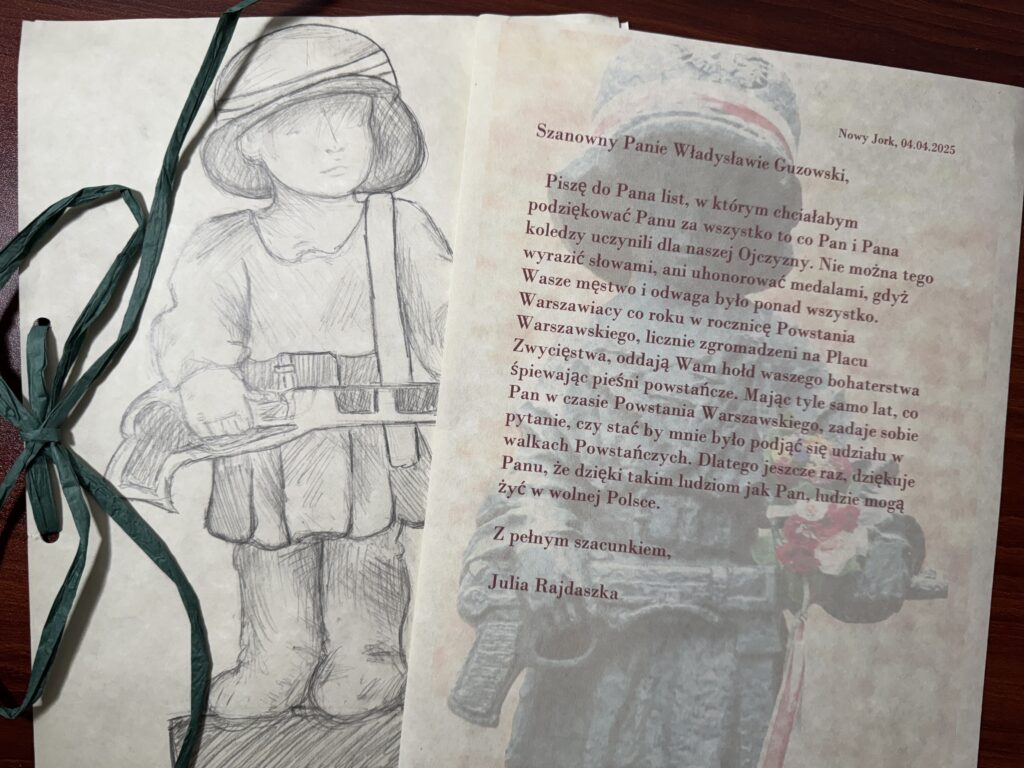 Nowy Jork, 04.04.2025
Szanowny Panie Władysławie Guzowski,
Piszę do Pana list, w którym chciałabym
podziękować Panu za wszystko to co Pan i Pana
koledzy uczynili dla naszej Ojczyzny. Nie można tego
wyrazić słowami, ani uhonorować medalami, gdyż
Wasze męstwo i odwaga było ponad wszystko.
Warszawiacy co roku w rocznicę Powstania
Warszawskiego, licznie zgromadzeni na Placu
Zwycięstwa, oddają Wam hołd waszego bohaterstwa
śpiewając pieśni powstańcze. Mając tyle samo lat, co
Pan w czasie Powstania Warszawskiego, zadaje sobie
pytanie, czy stać by mnie było podjąć się udziału w
walkach Powstańczych. Dlatego jeszcze raz, dziękuje
Panu, że dzięki takim ludziom jak Pan, ludzie mogą
żyć w wolnej Polsce.
Z pełnym szacunkiem,
Julia Rajdaszka